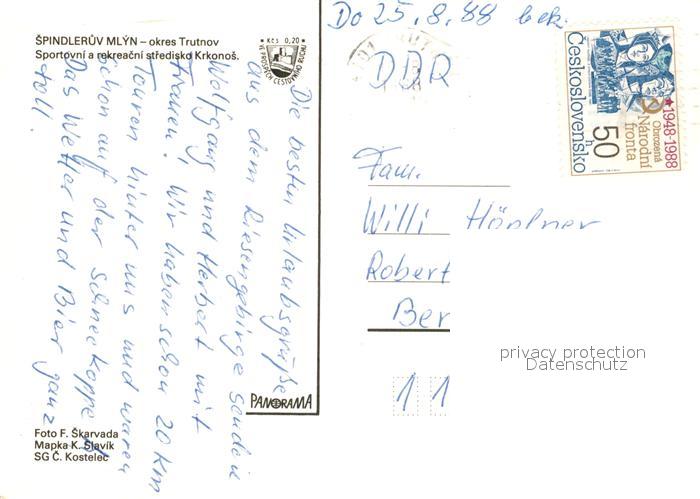 Do 25.8.88 bek.
ŠPINDLERŮV MLÝN – okres Trutnov
Sportovní a rekreační středisko Krkonoš.
Kčs 0,20
VE PROSPĚCH CESTOVNÍHO RUCHU
Die besten Urlaubsgrüße
aus dem Riesengebirge senden
Wolfgang und Herbert mit
Frauen. Wir haben schon 20 km
Touren hinter uns und waren
schon auf der Schneekoppe
Das Wetter und Bier ganz
toll.
Foto F. Škarvada
Mapka K. Slavík
SG Č. Kostelec
PANORAMA
Československo
50 h
★1948-1988
Obrozená
Národní
fronta
DDR
Fam.
Willi Höpfner
Robert
Ber
11
privacy protection
Datenschutz